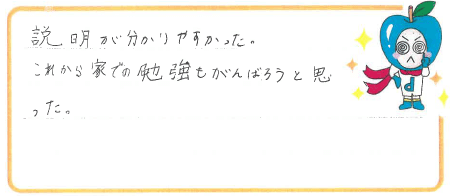 説明が分かりやすかった。
これから家での勉強もがんばろうと思
った。
d